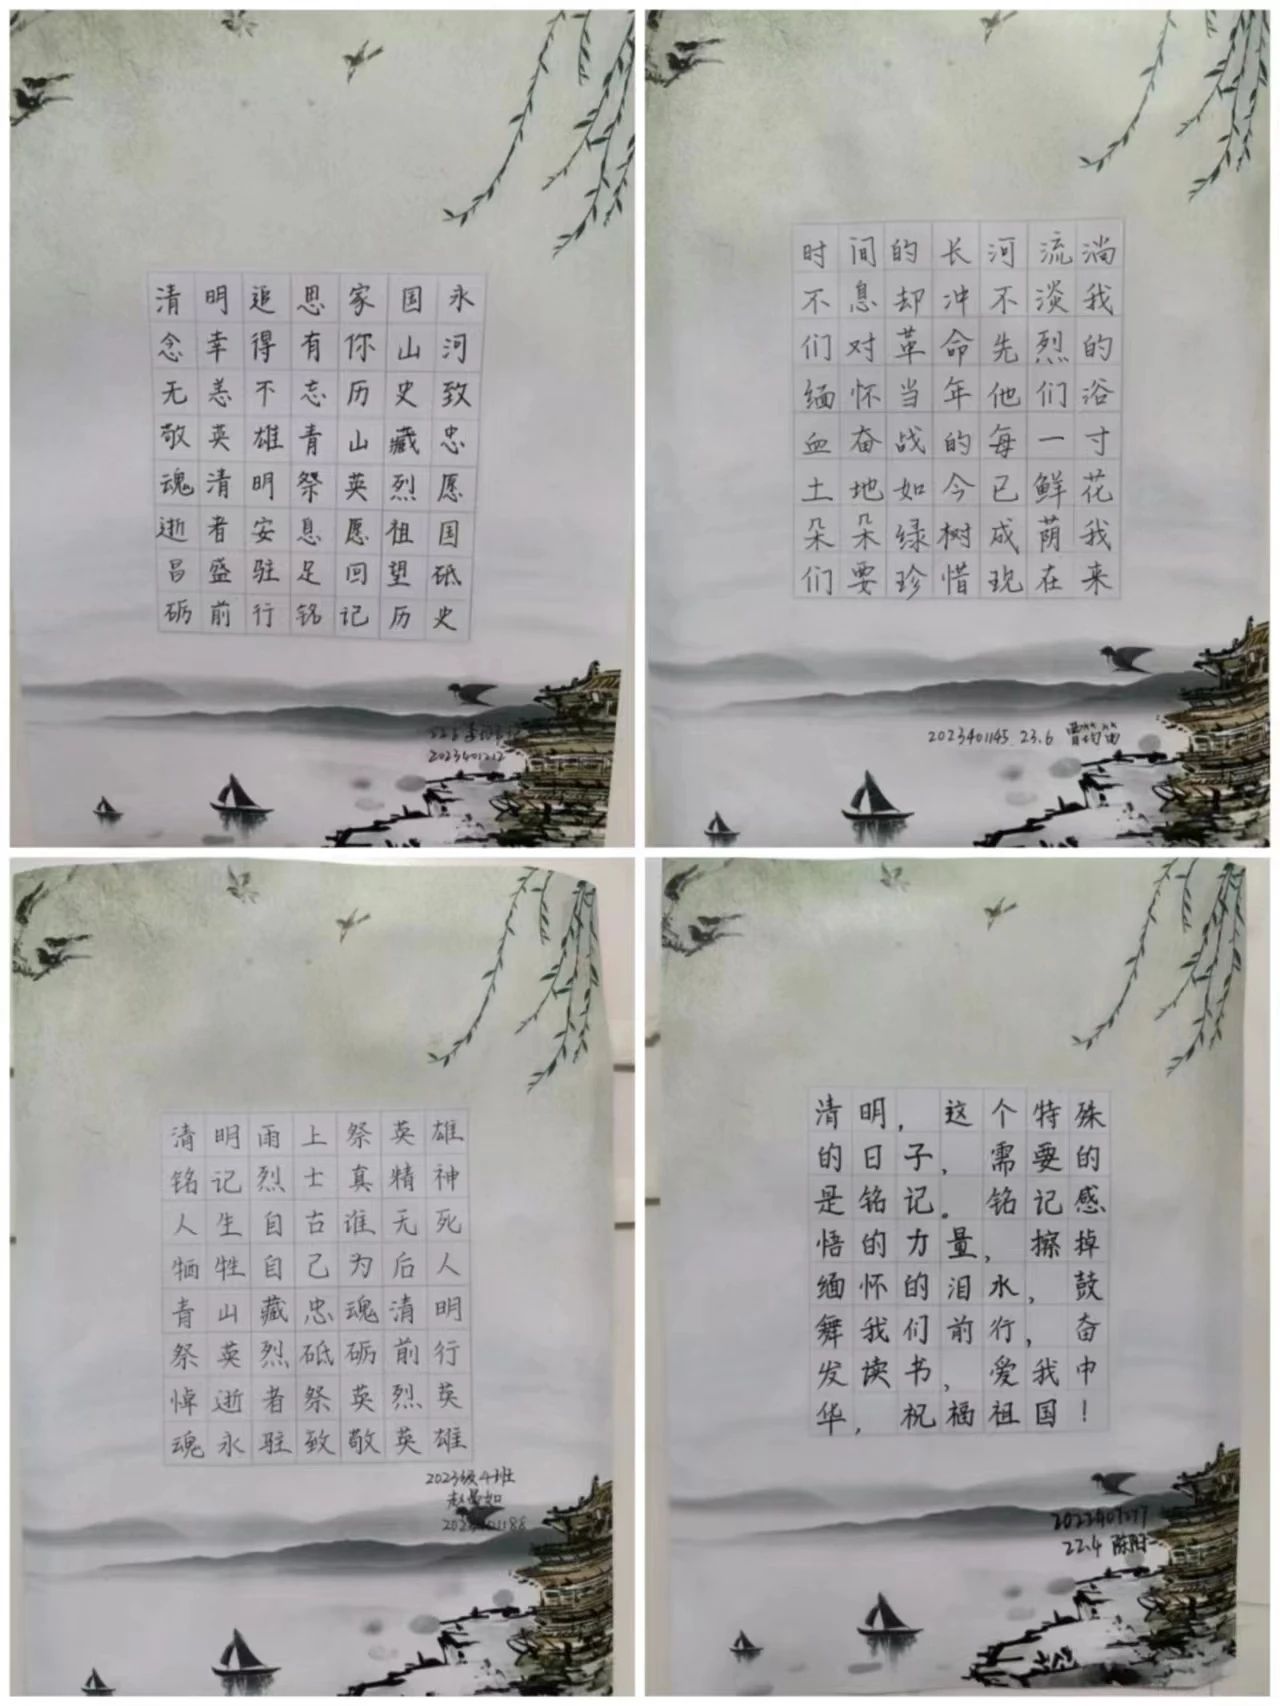 清明追思家国永
念幸得有你山河
无恙不忘历史致
敬英雄青山藏忠
魂清明祭英烈愿
逝者安息愿祖国
昌盛驻足回望砥
砺前行铭记历史
2023401212
时间的长河流淌
不息却冲不淡我
们对革命先烈的
缅怀当年他们浴
血奋战的每一寸
土地如今已鲜花
朵朵绿树成荫我
们要珍惜现在来
2023401145 23.6 曹筠笛
清明雨上祭英雄
铭记烈士真精神
人生自古谁无死
牺牲自己为后人
青山藏忠魂清明
祭英烈砥砺前行
悼逝者祭英烈英
魂永驻致敬英雄
2023级4班
赵曼如
2023401188
清明，这个特殊
的日子，需要的
是铭记。铭记感
悟的力量，擦掉
缅怀的泪水，鼓
舞我们前行，奋
发读书，爱我中
华，祝福祖国！
22.4